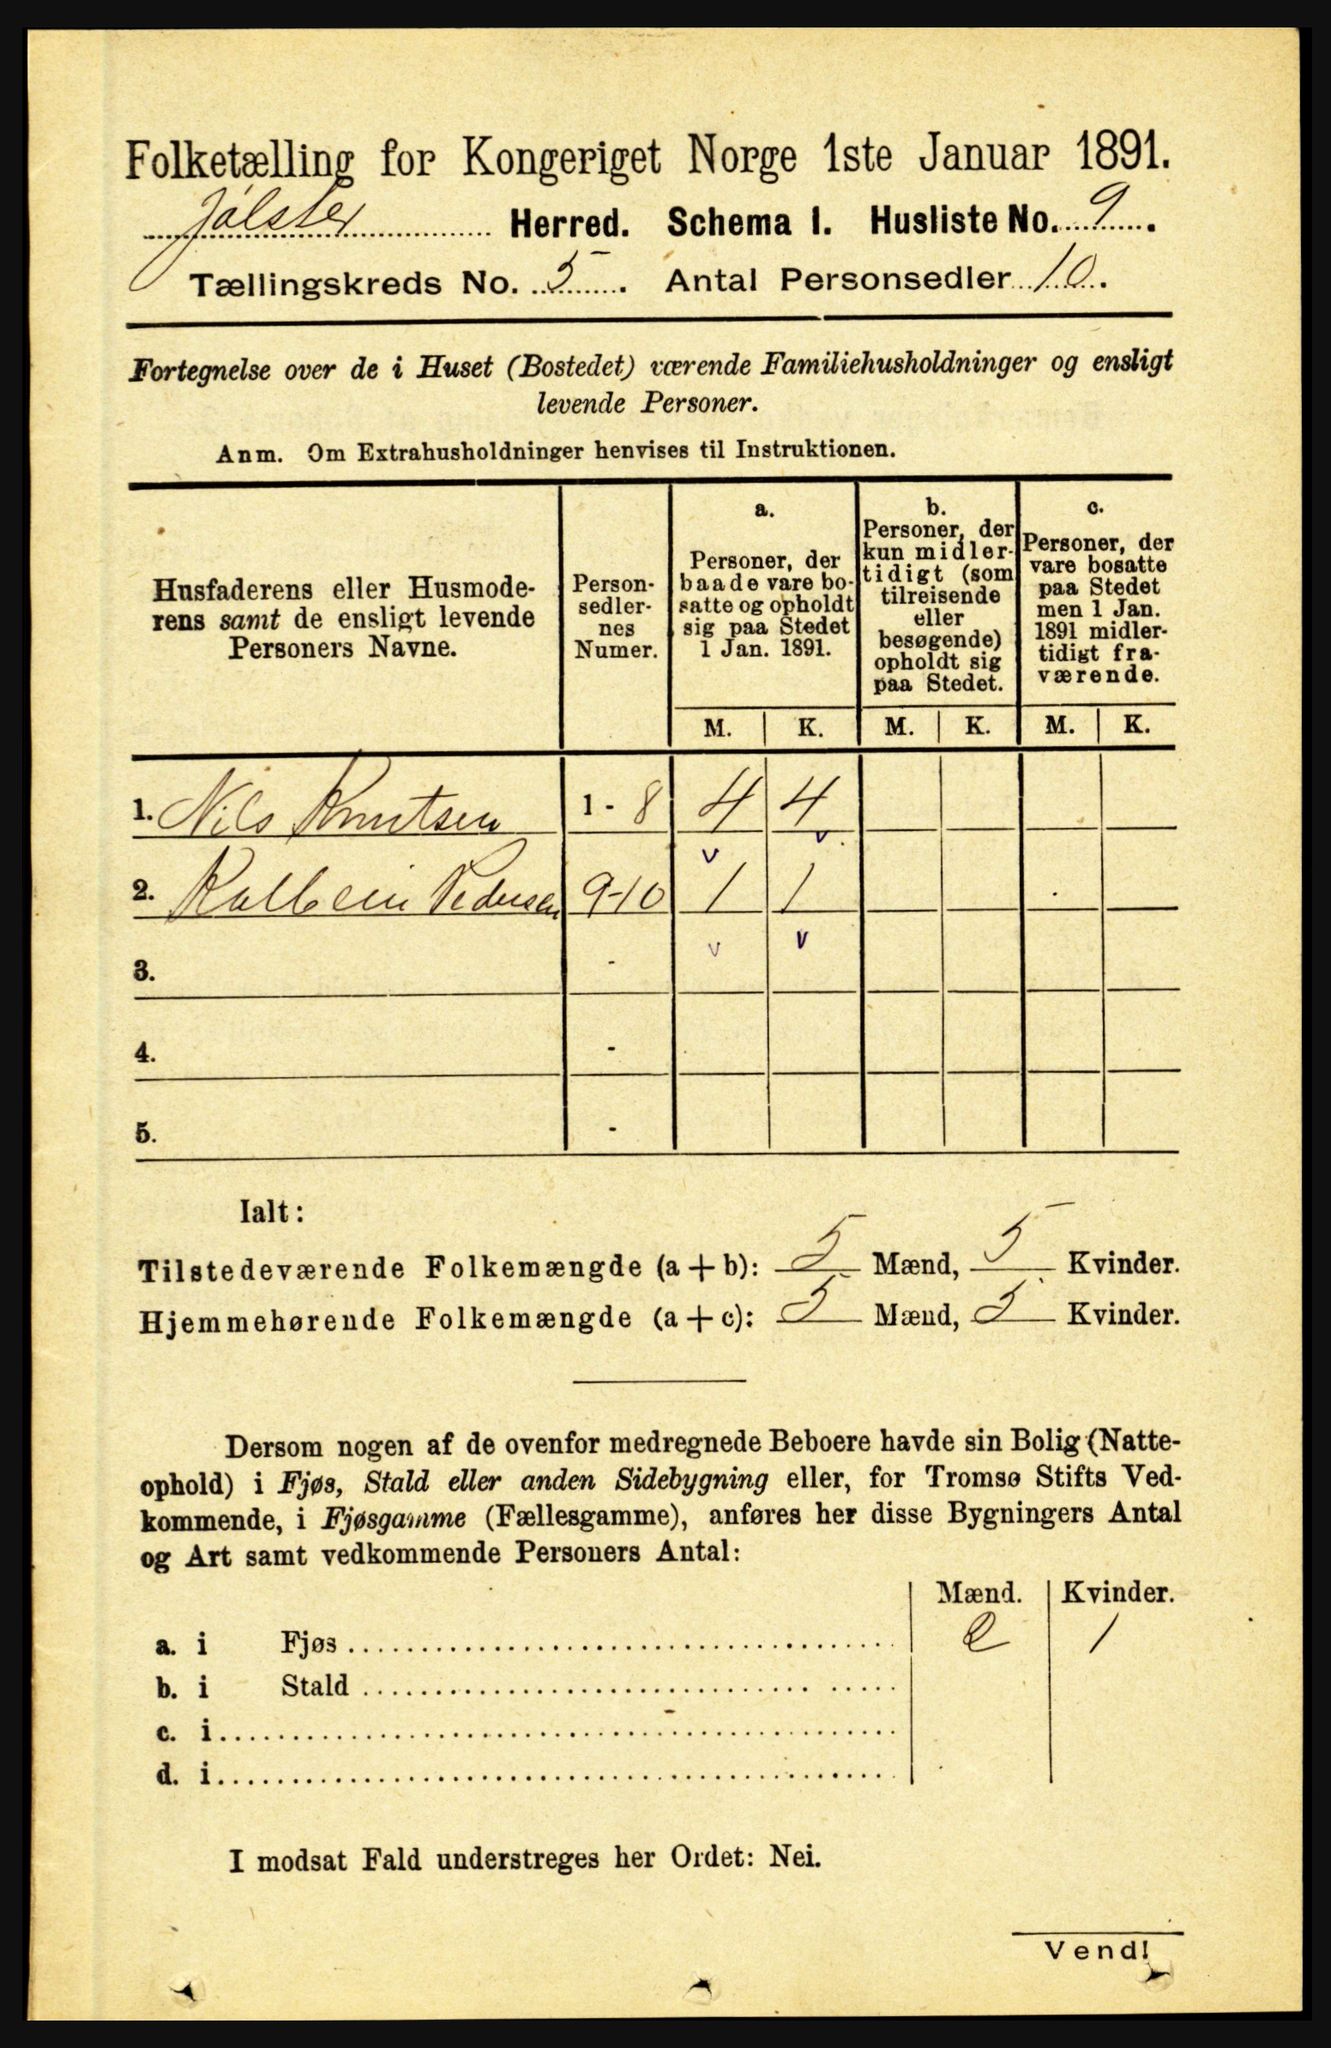 Folketælling for Kongeriget Norge 1ste Januar 1891.
Jølster Herred. Schema I. Husliste No. 9.
Tællingskreds No. 5. Antal Personsedler 10.
Fortegnelse over de i Huset (Bostedet) værende Familiehusholdninger og ensligt
levende Personer.
Anm. Om Extrahusholdninger henvises til Instruktionen.
Husfaderens eller Husmode-
rens samt de ensligt levende
Personers Navne.
Person-
sedler-
nes
Numer.
a.
Personer, der
baade vare bo-
satte og opholdt
sig paa Stedet
1 Jan. 1891.
b.
Personer, der
kun midler-
tidigt (som
tilreisende
eller
besøgende)
opholdt sig
paa Stedet.
c.
Personer, der
vare bosatte
paa Stedet
men 1 Jan.
1891 midler-
tidigt fra-
værende.
M. K. M. K. M. K.
1. Nils Knutsen 1 - 8 4 4
2. Kolbein Pedersen 9-10 1 1
3. -
4. -
5. -
Ialt:
Tilstedeværende Folkemængde (a + b): 5 Mænd, 5 Kvinder.
Hjemmehørende Folkemængde (a + c): 5 Mænd, 5 Kvinder.
Dersom nogen af de ovenfor medregnede Beboere havde sin Bolig (Natte-
ophold) i Fjøs, Stald eller anden Sidebygning eller, for Tromsø Stifts Ved-
kommende, i Fjøsgamme (Fællesgamme), anføres her disse Bygningers Antal
og Art samt vedkommende Personers Antal:
Mænd. Kvinder.
a. i Fjøs 2 1
b. i Stald
c. i
d. i
I modsat Fald understreges her Ordet: Nei.
Vend!